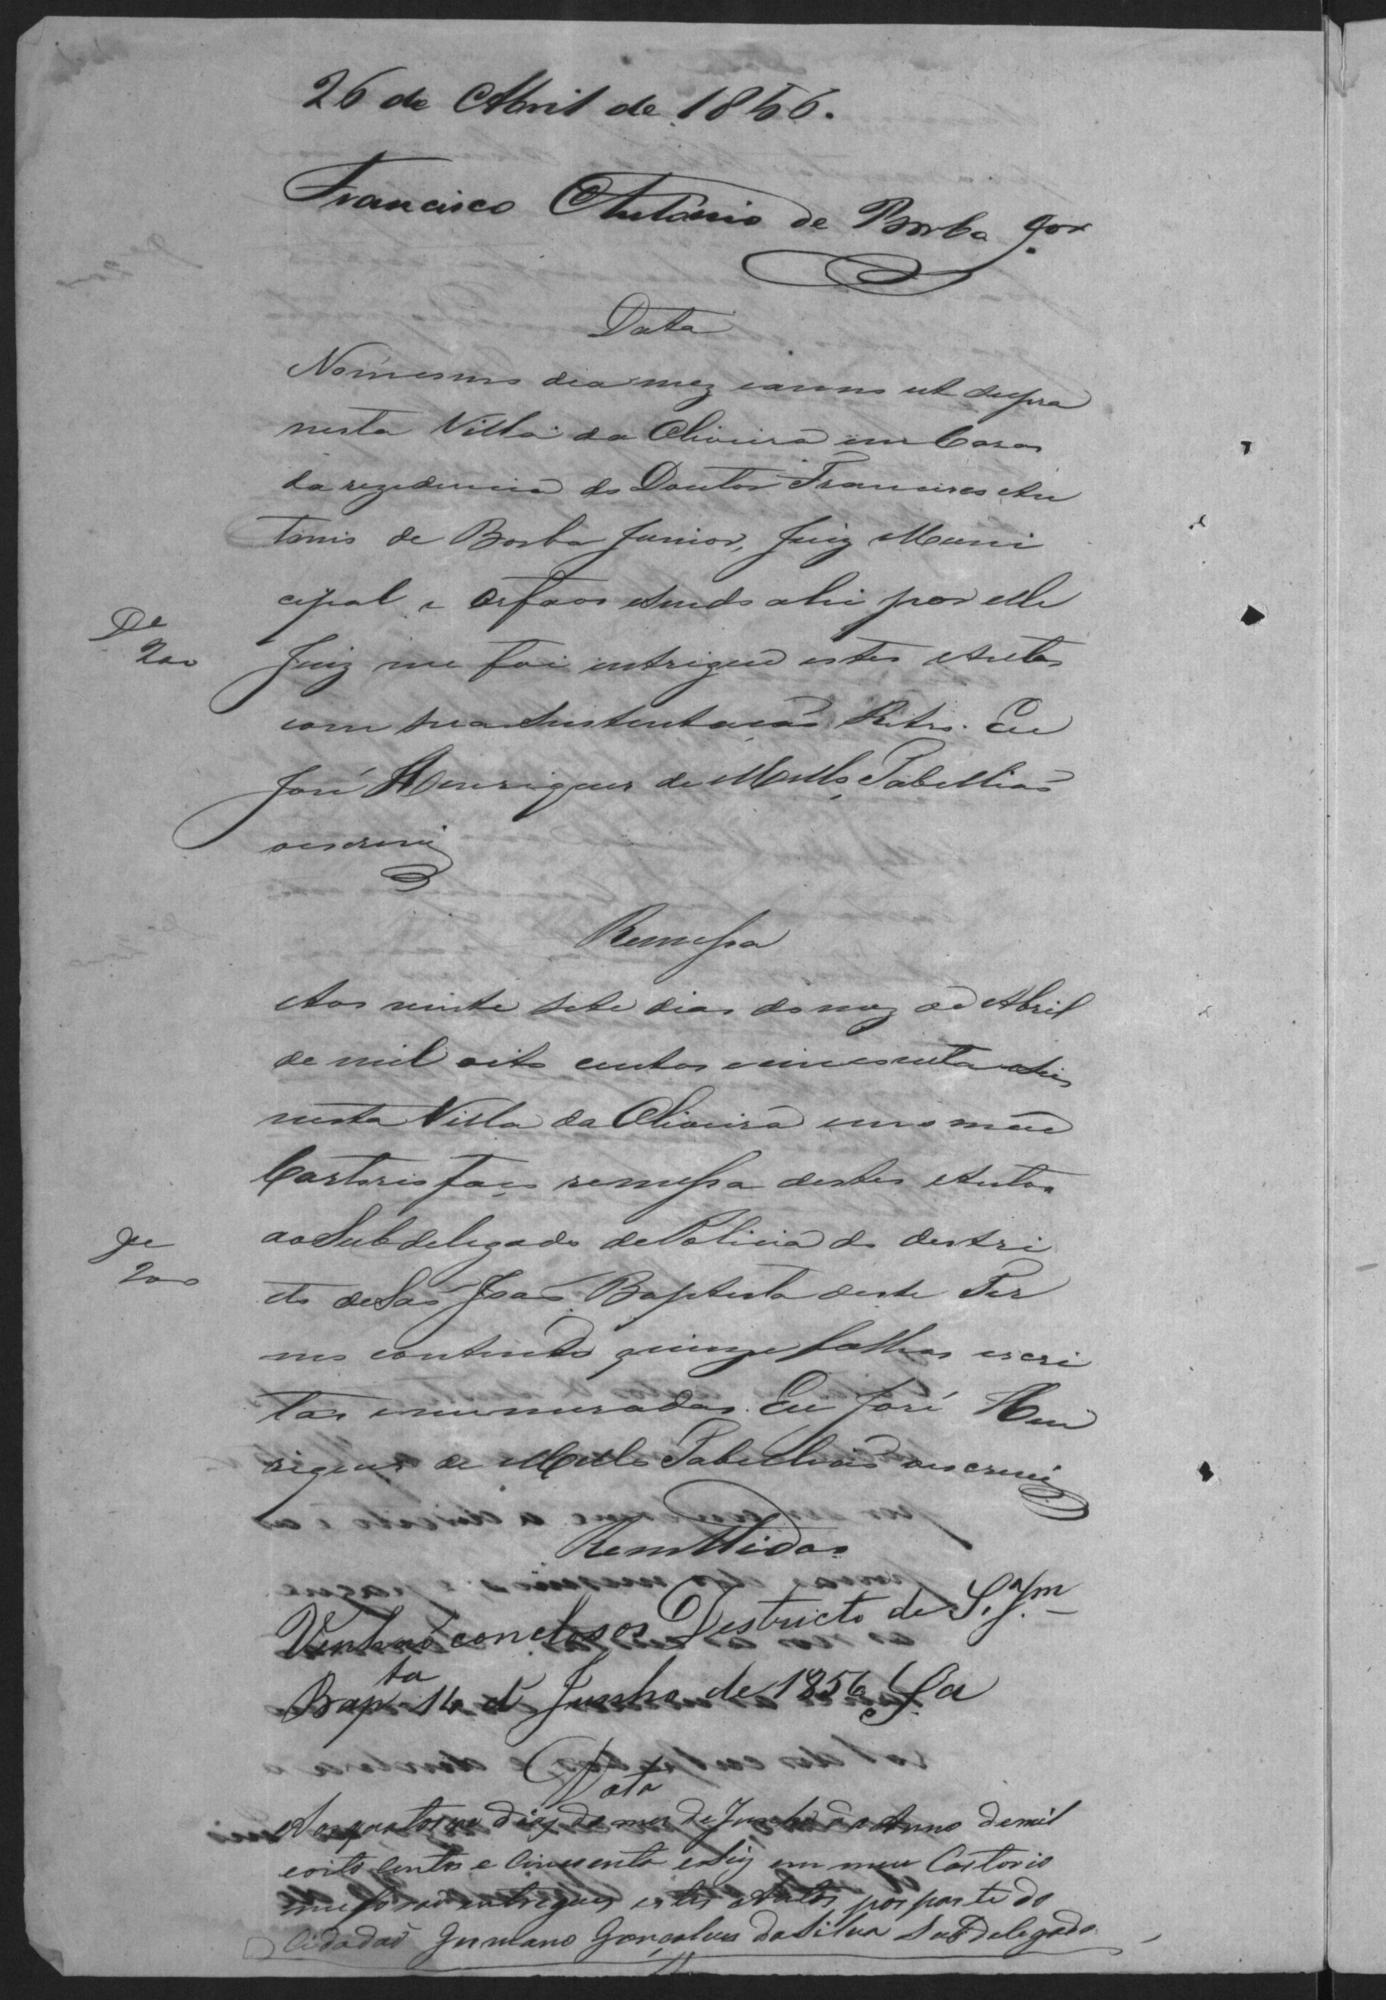 26 de Abril de 1856.
Francisco Antonio de Borba Jor
Data
No mesmo dia mez eanno ut supra
nesta Villa da Oliveira em Casas
da rezedencia do Doutor Francisco An
tonio de Borba Junior, Juiz Muni
cipal e Orfaos sendo ahi por elle
De
200
Juiz me foi intrigue estes Autos
com sua Sustentacão Retro. Eu
José Henriques de Mello, Tabellião
oescrevi
Remessa
Aos vinte sete dias do mez de Abril
de mil oito centos cincoenta eseis
nesta Villa da Oliveira em o meu
Cartorio faço remessa destes Autos
ao Subdelegado de Policia do destri
De
200
cto de São João Baptista deste Ter
mo contendo quinze folhas escri
tas enumeradas. Eu José Hen
riques de Mello Tabellião oescrevi
Remettidos
Venhão conclosos Destricto de S. Jm
Bapta 14 d Junho de 1856
Data
Aos quatorze dias do mes de Junho do Anno de mil
eoito Centos e Cincoenta eseis em meu Cartorio
me forão entregues estes Autos por parte do
Cidadão Germano Gonçalves da Silva SubDelegado